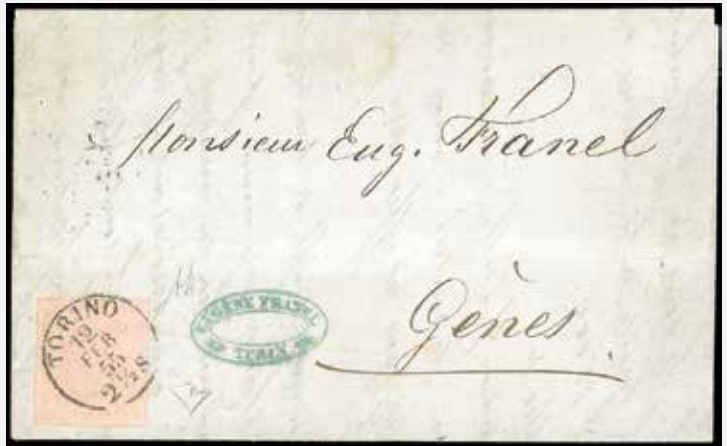 Monsieur Eug. Franel
Gênes
TORINO
12
FEB
55
2½S
EUGÈNE FRANEL
TURIN